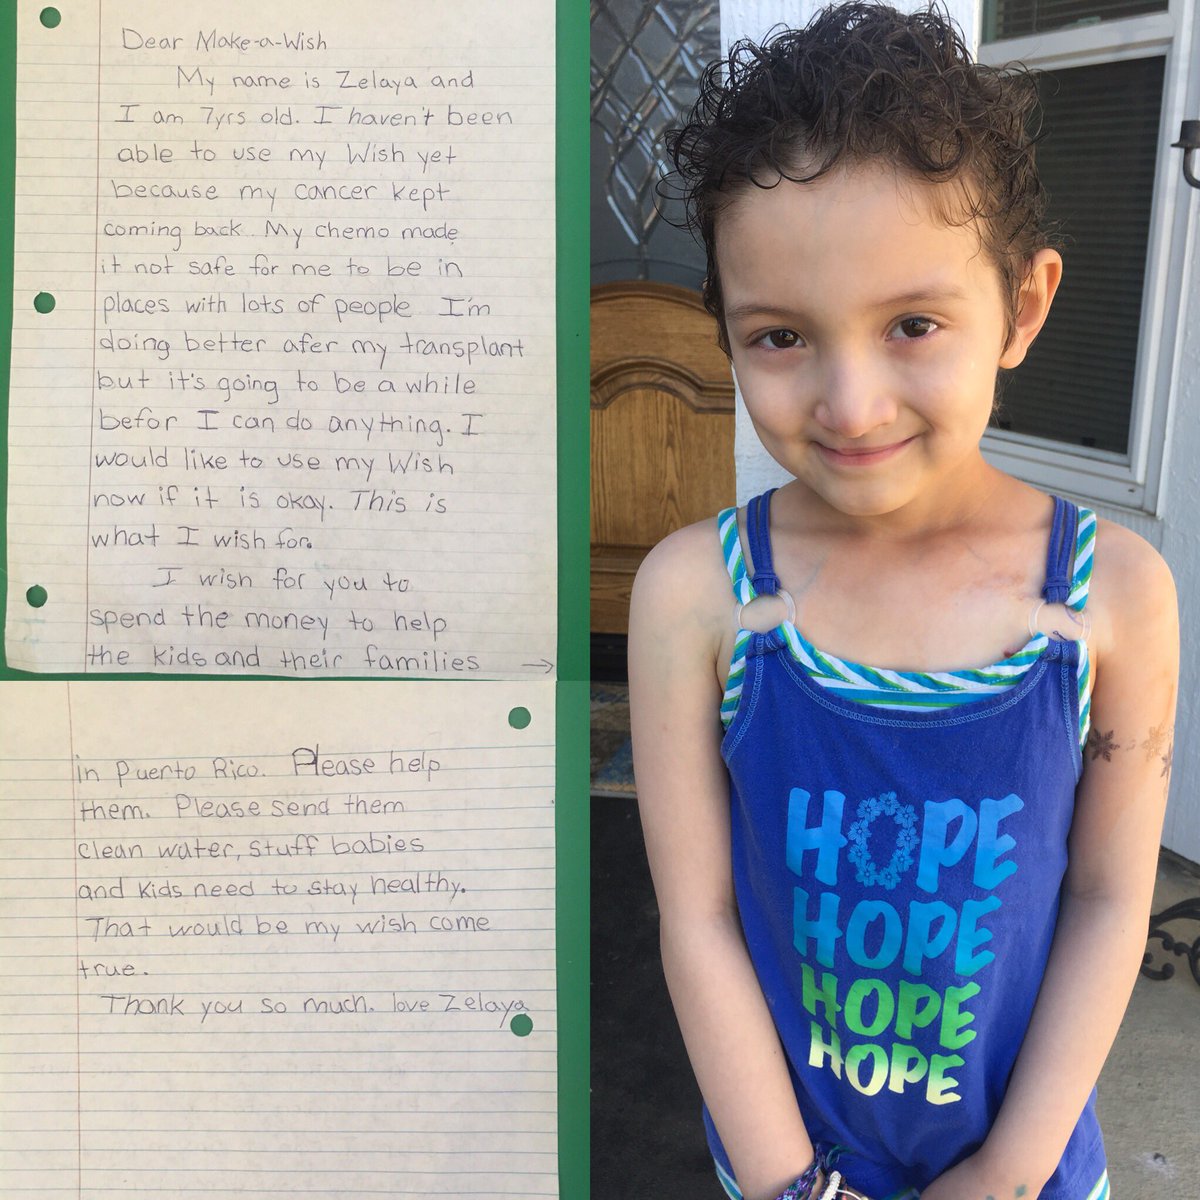 Dear Make-a-Wish
My name is Zelaya and
I am 7yrs old. I haven't been
able to use my Wish yet
because my cancer kept
coming back. My chemo made
it not safe for me to be in
places with lots of people. I'm
doing better afer my transplant
but it's going to be a while
befor I can do anything. I
would like to use my Wish
now if it is okay. This is
what I wish for.
I wish for you to
spend the money to help
the kids and their families →
in Puerto Rico. Please help
them. Please send them
clean water, stuff babies
and kids need to stay healthy.
That would be my wish come
true.
Thank you so much. love Zelaya
HOPE
HOPE
HOPE
HOPE